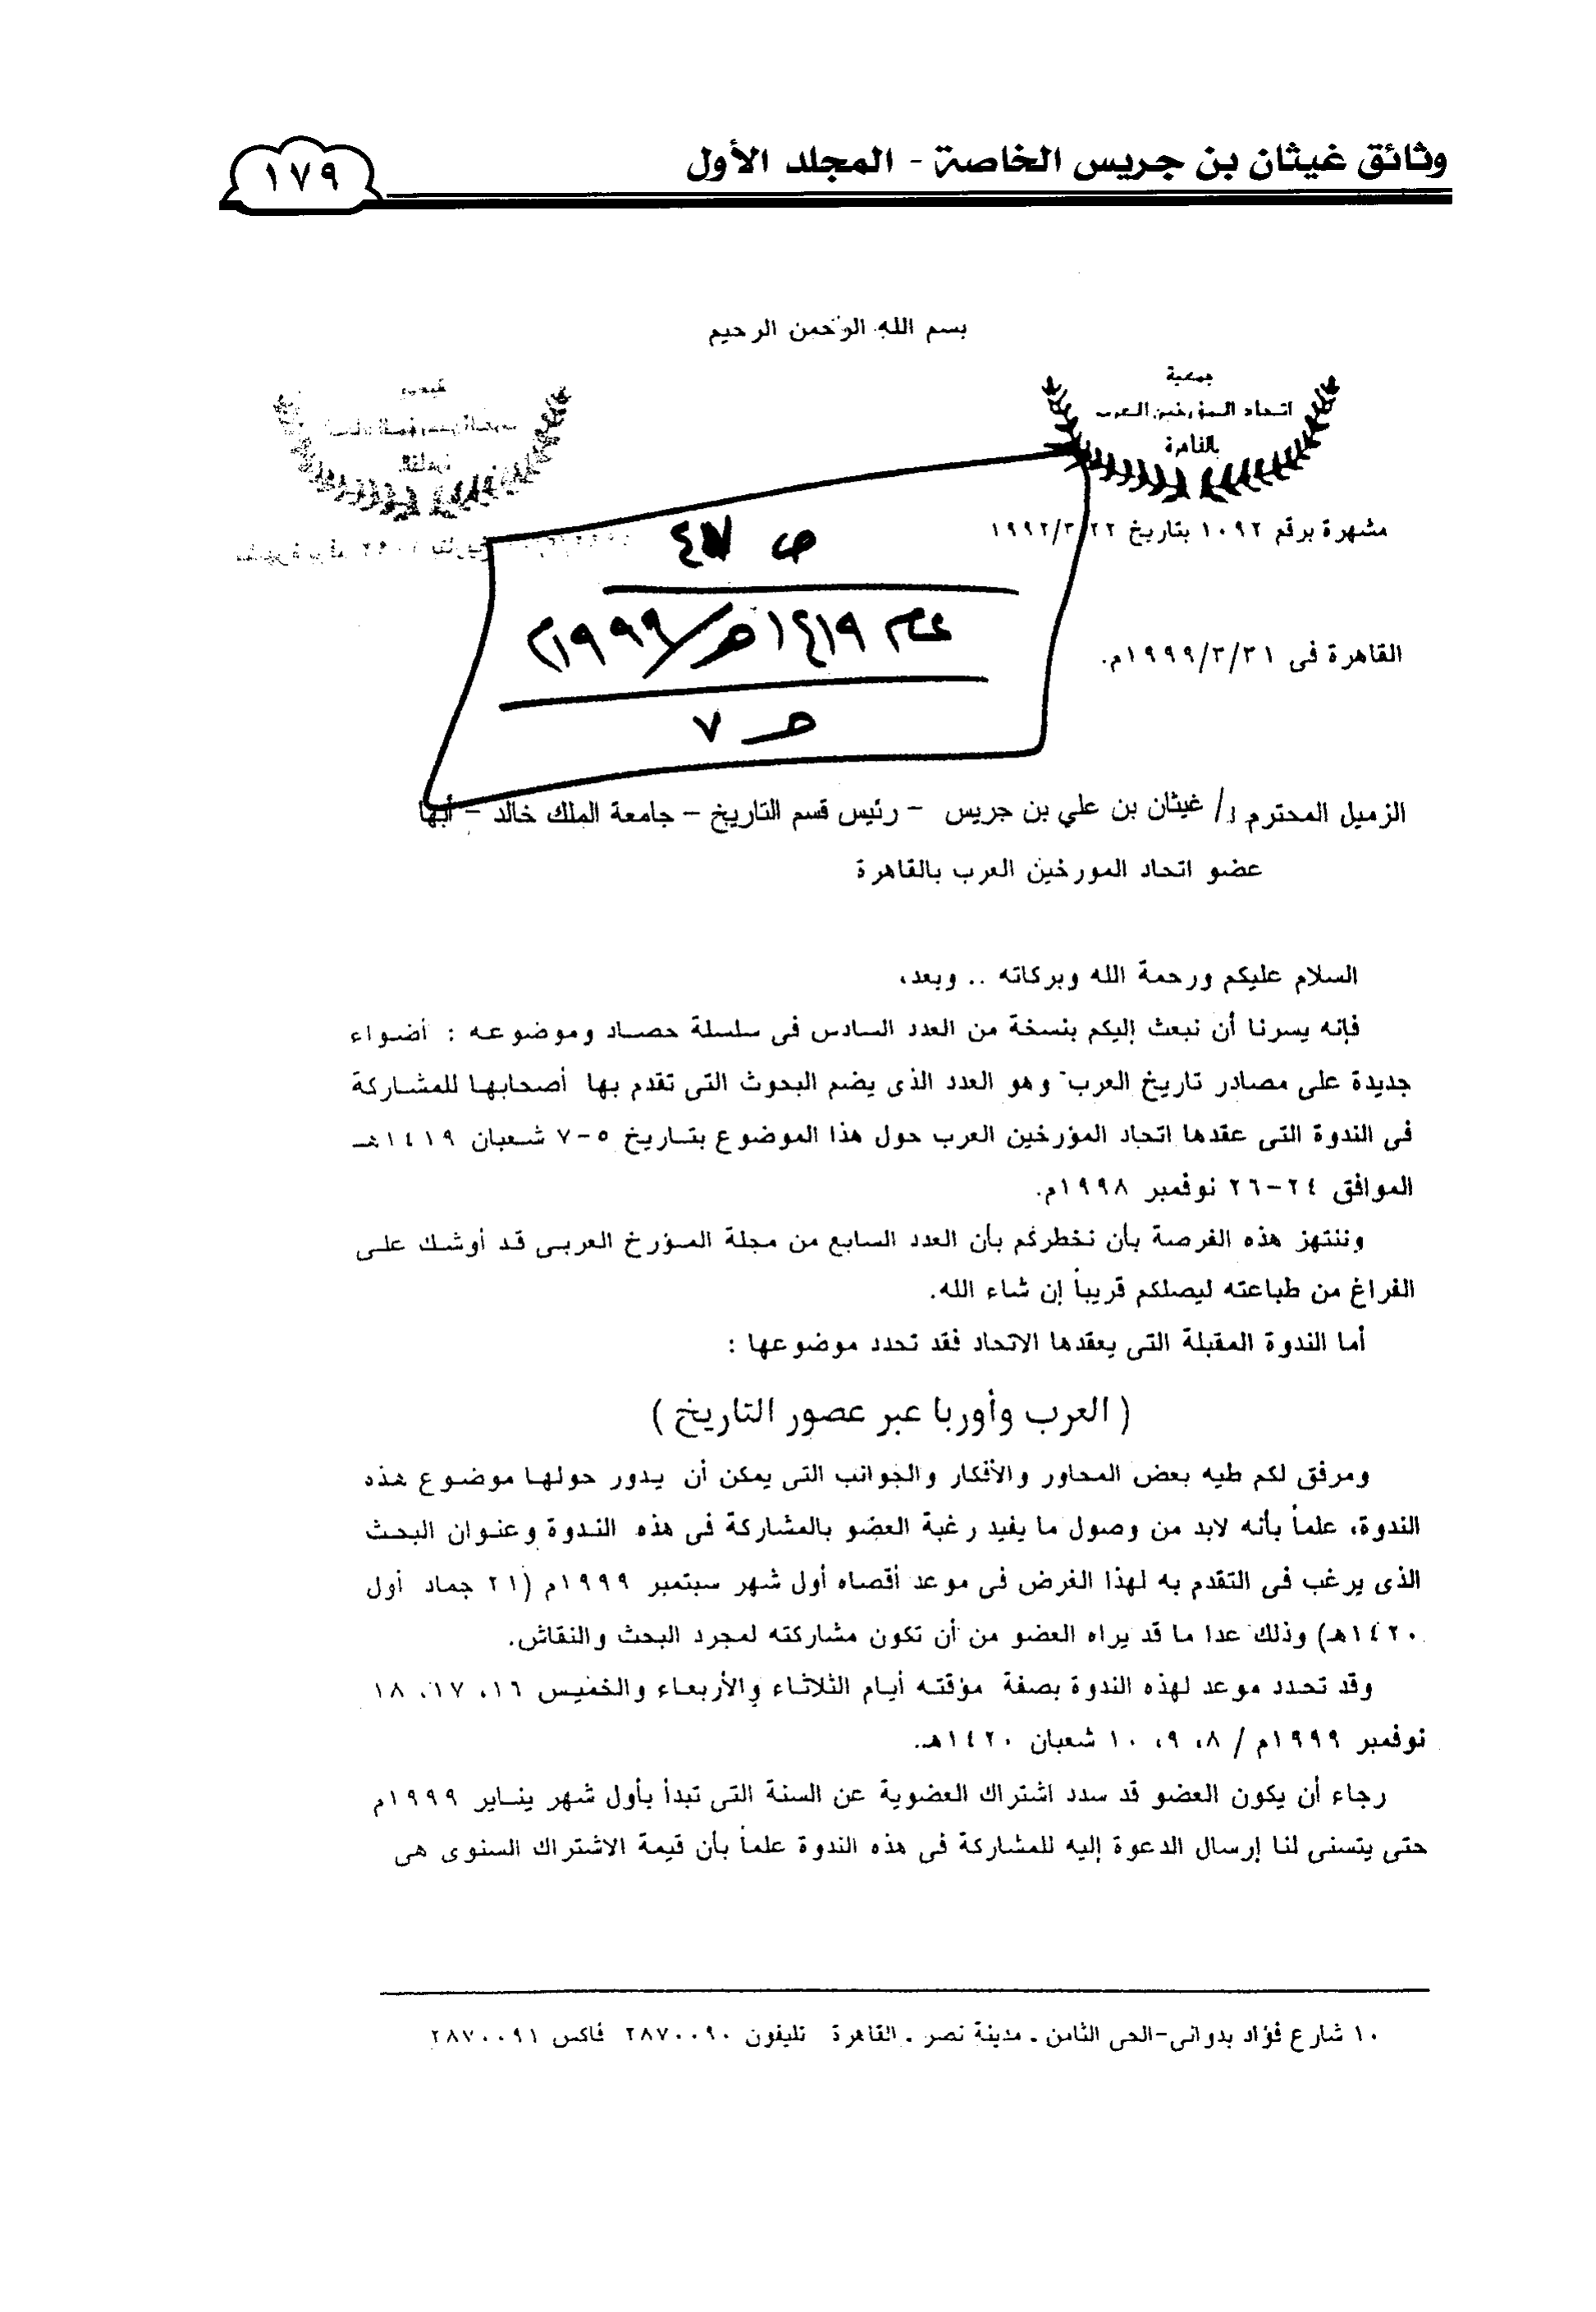 وثائق غيثان بن جريس الخاصة - المجلد الأول
١٧٩
بسم الله الرحمن الرحيم
جمعية
اتحاد المؤرخين العرب
بالقاهرة
مشهرة برقم ١٠٩٢ بتاريخ ١٩٩٢/٣/٢٢
ص
عام ١٤١٩هـ/١٩٩٩م
حـ ٧
القاهرة فى ١٩٩٩/٣/٣١م.
الزميل المحترم د/ غيثان بن علي بن جريس - رئيس قسم التاريخ - جامعة الملك خالد - أبها
عضو اتحاد المورخين العرب بالقاهرة
السلام عليكم ورحمة الله وبركاته .. وبعد،
فإنه يسرنا أن نبعث إليكم بنسخة من العدد السادس فى سلسلة حصاد وموضوعه : أضواء
جديدة على مصادر تاريخ العرب" وهو العدد الذى يضم البحوث التى تقدم بها أصحابها للمشاركة
فى الندوة التى عقدها اتحاد المؤرخين العرب حول هذا الموضوع بتاريخ ٥-٧ شعبان ١٤١٩هـ
الموافق ٢٤-٢٦ نوفمبر ١٩٩٨م.
وننتهز هذه الفرصة بأن نخطركم بأن العدد السابع من مجلة المؤرخ العربى قد أوشك على
الفراغ من طباعته ليصلكم قريباً إن شاء الله.
أما الندوة المقبلة التى يعقدها الاتحاد فقد تحدد موضوعها :
( العرب وأوربا عبر عصور التاريخ )
ومرفق لكم طيه بعض المحاور والأفكار والجوانب التى يمكن أن يدور حولها موضوع هذه
الندوة، علماً بأنه لابد من وصول ما يفيد رغبة العضو بالمشاركة فى هذه الندوة وعنوان البحث
الذى يرغب فى التقدم به لهذا الغرض فى موعد أقصاه أول شهر سبتمبر ١٩٩٩م (٢١ جماد أول
١٤٢٠هـ) وذلك عدا ما قد يراه العضو من أن تكون مشاركته لمجرد البحث والنقاش.
وقد تحدد موعد لهذه الندوة بصفة مؤقته أيام الثلاثاء والأربعاء والخميس ١٦، ١٧، ١٨
نوفمبر ١٩٩٩م / ٨، ٩، ١٠ شعبان ١٤٢٠هـ.
رجاء أن يكون العضو قد سدد اشتراك العضوية عن السنة التى تبدأ بأول شهر يناير ١٩٩٩م
حتى يتسنى لنا إرسال الدعوة إليه للمشاركة فى هذه الندوة علماً بأن قيمة الاشتراك السنوى هى
١٠ شارع فؤاد بدوانى-الحى الثامن . مدينة نصر . القاهرة تليفون ٢٨٧٠٠٩٠ فاكس ٢٨٧٠٠٩١